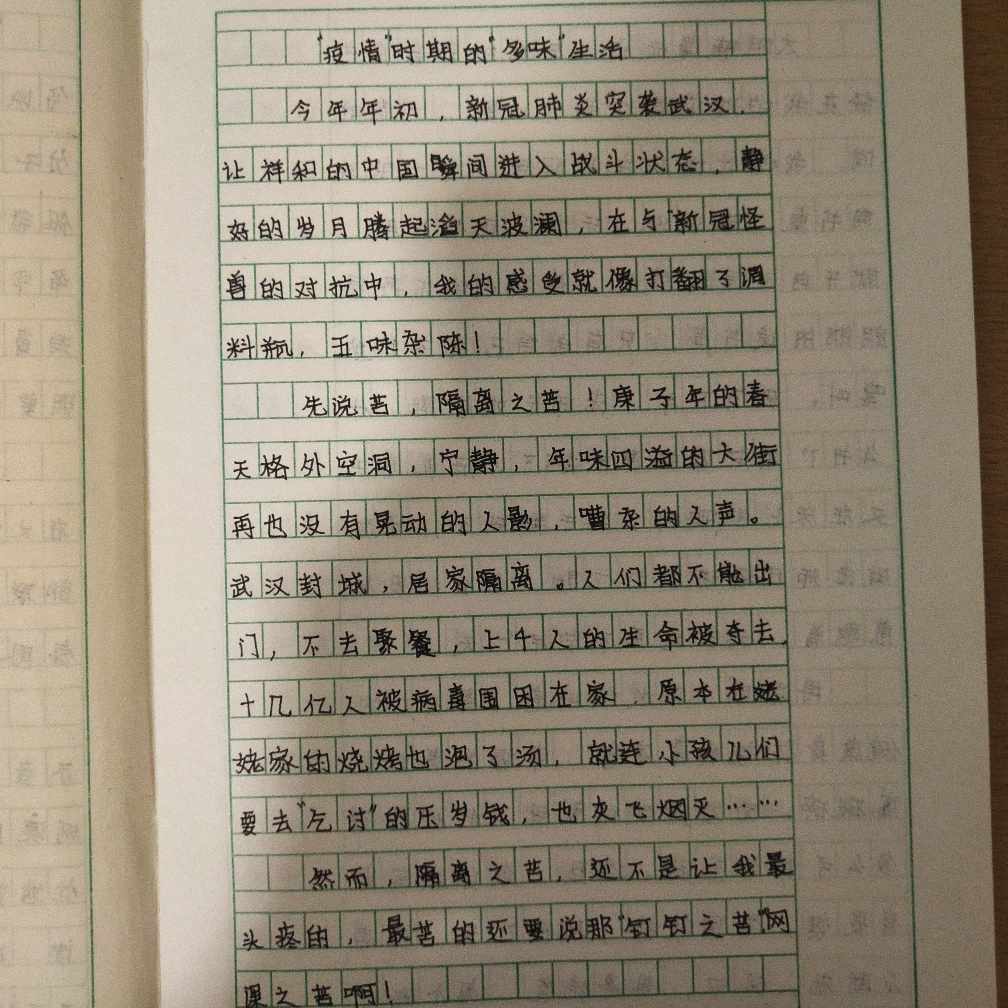 "疫情"时期的"多味"生活
今年年初，新冠肺炎突袭武汉，
让祥和的中国瞬间进入战斗状态，静
好的岁月腾起滔天波澜，在与"新冠怪
兽的对抗中，我的感受就像打翻了调
料瓶，五味杂陈！
先说苦，隔离之苦！庚子年的春
天格外空洞，宁静，年味四溢的大街
再也没有晃动的人影，嘈杂的人声。
武汉封城，居家隔离。人们都不能出
门，不去聚餐，上千人的生命被夺去，
十几亿人被病毒围困在家，原本在姥
姥家的烧烤也泡了汤，就连小孩儿们
要去"乞讨"的压岁钱，也灰飞烟灭……
然而，隔离之苦，还不是让我最
头疼的，最苦的还要说那"钉钉之苦"网
课之苦啊！